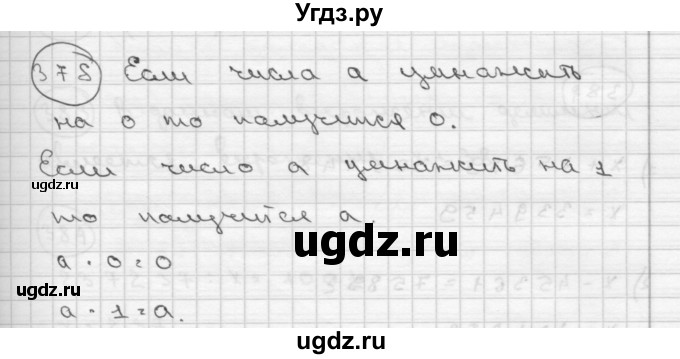 Угдз.ру
378 Если числа а умнажить
на 0 то палучится 0.
Если число а умнажить на 1
то палучится а.
а · 0 = 0
а · 1 = а.
ugdz.ru
ugdz.ru
ugdz.ru
ugdz.ru